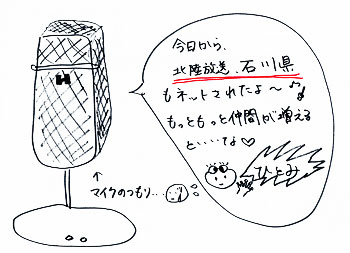 今日から、
北陸放送、石川県
もネットされたよ〜♪
もっともっと仲間が増える
と・・・・てな♡
ひとみ
H
↑
マイクのつもり・・・